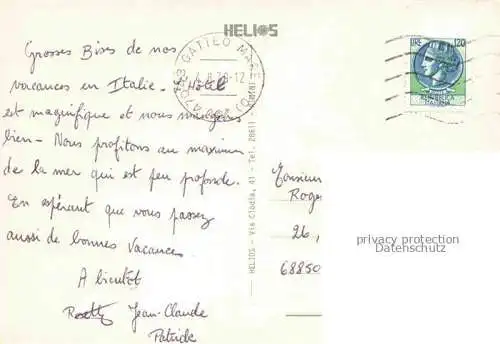 HELIOS
Grosses Bises de nos
vacances en Italie - L'Hôtel
est magnifique et nous mangeons
bien - Nous profitons au maximum
de la mer qui est peu profonde.
En espérant que vous passez
aussi de bonnes Vacances.
A bientôt
Jean-Claude
Patrick
GATTEO MARE
HELIOS - Via Clodia, 41 - Tel. 28611
LIRE 120
Monsieur
Roger
26,
68850
privacy protection
Datenschutz